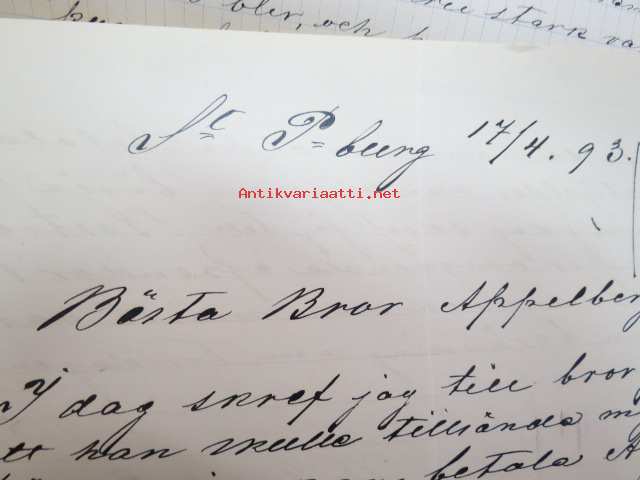 blev, och
stark
St P=burg 17/4. 93.
Antikvariaatti.net
Bästa Bror Appelberg
I dag skref jag till bror
att han skulle tillsända
betala